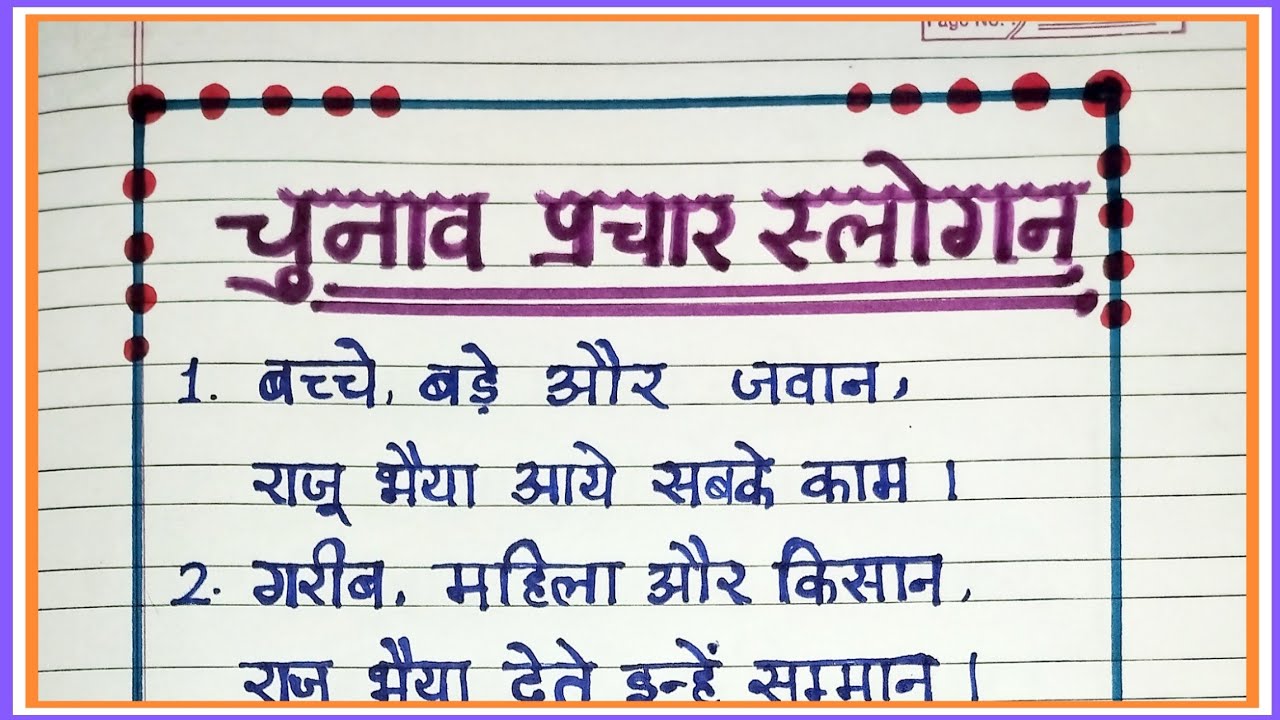 Page No. :
चुनाव प्रचार स्लोगन
1. बच्चे, बड़े और जवान,
राजू भैया आये सबके काम ।
2. गरीब, महिला और किसान,
राजू भैया देते इन्हें सम्मान ।